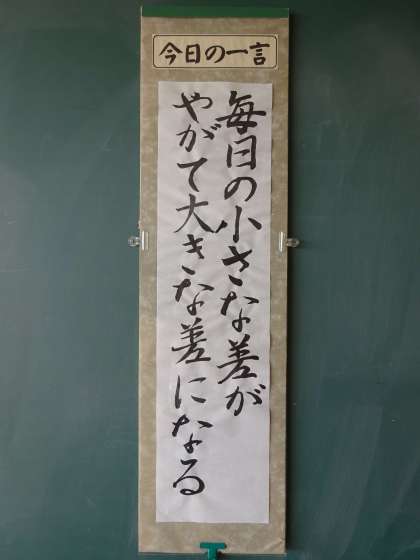 今日の一言
毎日の小さな差が
やがて大きな差になる